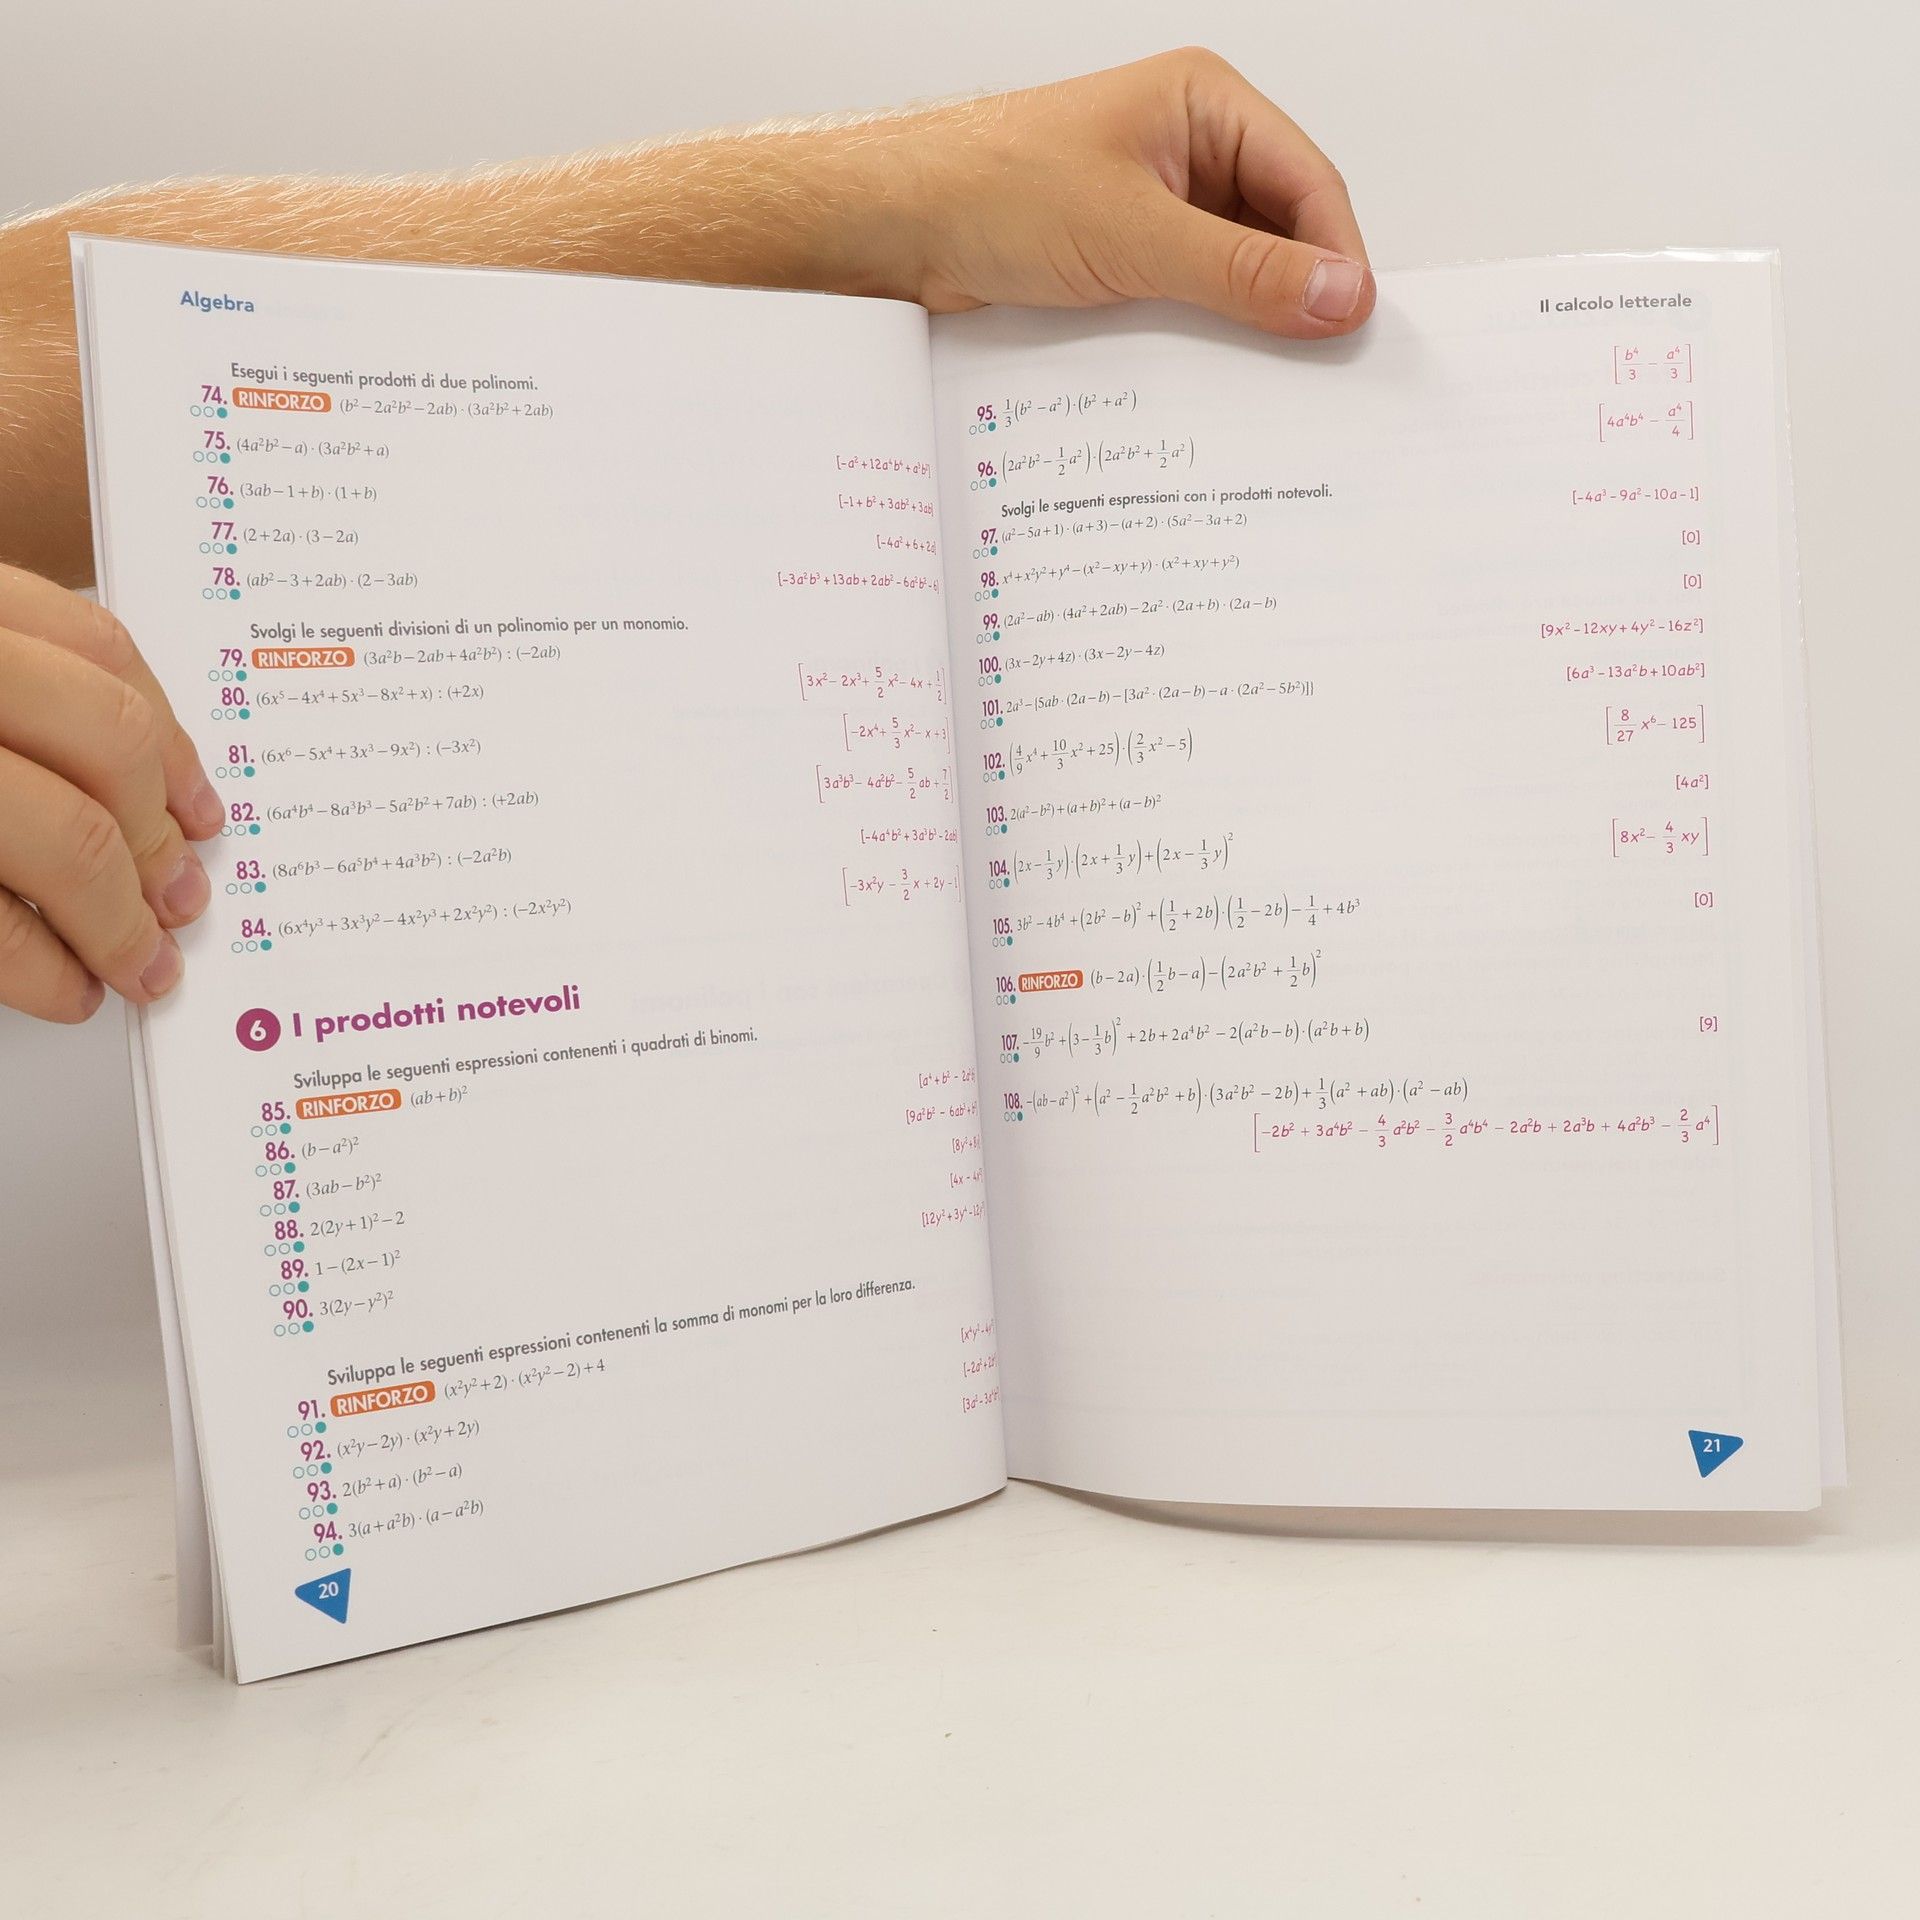 Algebra
Esegui i seguenti prodotti di due polinomi.
74. RINFORZO (b² – 2a²b² – 2ab) · (3a²b² + 2ab)
75. (4a²b² – a) · (3a²b² + a) [-a² + 12a⁴b⁴ + a³b²]
76. (3ab – 1 + b) · (1 + b) [-1 + b² + 3ab² + 3ab]
77. (2 + 2a) · (3 – 2a) [-4a² + 6 + 2a]
78. (ab² – 3 + 2ab) · (2 – 3ab) [-3a²b³ + 13ab + 2ab² - 6a²b² - 6]
Svolgi le seguenti divisioni di un polinomio per un monomio.
79. RINFORZO (3a²b – 2ab + 4a²b²) : (–2ab)
80. (6x⁵ – 4x⁴ + 5x³ – 8x² + x) : (+2x) [3x⁴ - 2x³ + 5/2 x² - 4x + 1/2]
81. (6x⁶ – 5x⁴ + 3x³ – 9x²) : (–3x²) [-2x⁴ + 5/3 x² - x + 3]
82. (6a⁴b⁴ – 8a³b³ – 5a²b² + 7ab) : (+2ab) [3a³b³ - 4a²b² - 5/2 ab + 7/2]
83. (8a⁶b³ – 6a⁵b⁴ + 4a³b²) : (–2a²b) [-4a⁴b² + 3a³b³ - 2ab]
84. (6x⁴y³ + 3x³y² – 4x²y³ + 2x²y²) : (–2x²y²) [-3x²y - 3/2 x + 2y - 1]
6 I prodotti notevoli
Sviluppa le seguenti espressioni contenenti i quadrati di binomi.
85. RINFORZO (ab + b)²
86. (b – a²)² [a⁴ + b² - 2a²b]
87. (3ab – b²)² [9a²b² - 6ab³ + b⁴]
88. 2(2y + 1)² – 2 [8y² + 8y]
89. 1 – (2x – 1)² [4x - 4x²]
90. 3(2y – y²)² [12y² + 3y⁴ - 12y³]
Sviluppa le seguenti espressioni contenenti la somma di monomi per la loro differenza.
91. RINFORZO (x²y² + 2) · (x²y² – 2) + 4
92. (x²y – 2y) · (x²y + 2y) [x⁴y² - 4y²]
93. 2(b² + a) · (b² – a)
94. 3(a + a²b) · (a – a²b) [3a² - 3a⁴b²]
20
Il calcolo letterale
95. 1/3 (b² – a²) · (b² + a²) [b⁴/3 - a⁴/3]
96. (2a²b² – 1/2 a²) · (2a²b² + 1/2 a²) [4a⁴b⁴ - a⁴/4]
Svolgi le seguenti espressioni con i prodotti notevoli.
97. (a² – 5a + 1) · (a + 3) – (a + 2) · (5a² – 3a + 2) [-4a³ - 9a² - 10a - 1]
98. x⁴ + x²y² + y⁴ – (x² – xy + y) · (x² + xy + y²) [0]
99. (2a² – ab) · (4a² + 2ab) – 2a² · (2a + b) · (2a – b) [0]
100. (3x – 2y + 4z) · (3x – 2y – 4z) [9x² - 12xy + 4y² - 16z²]
101. 2a³ – {5ab · (2a – b) – [3a² · (2a – b) – a · (2a² – 5b²)]} [6a³ - 13a²b + 10ab²]
102. (4/9 x⁴ + 10/3 x² + 25) · (2/3 x² – 5) [8/27 x⁶ - 125]
103. 2(a² – b²) + (a + b)² + (a – b)² [4a²]
104. (2x – 1/3 y) · (2x + 1/3 y) + (2x – 1/3 y)² [8x² - 4/3 xy]
105. 3b² – 4b⁴ + (2b² – b)² + (1/2 + 2b) · (1/2 – 2b) – 1/4 + 4b³ [0]
106. RINFORZO (b – 2a) · (1/2 b – a) – (2a²b² + 1/2 b)²
107. –19/9 b² + (3 – 1/3 b)² + 2b + 2a⁴b² – 2(a²b – b) · (a²b + b) [9]
108. –(ab – a²)² + (a² – 1/2 a²b² + b) · (3a²b² – 2b) + 1/3 (a² + ab) · (a² – ab)
[-2b² + 3a⁴b² - 4/3 a²b² - 3/2 a⁴b⁴ - 2a²b + 2a³b + 4a²b³ - 2/3 a⁴]
21